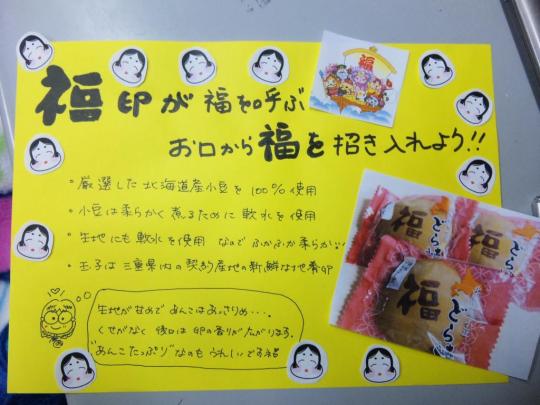 福印が福を呼ぶ
お口から福を招き入れよう!!
・厳選した北海道産小豆を100%使用
・小豆は柔らかく煮るために軟水を使用
・生地にも軟水を使用 なのでふかふか柔らかい
・玉子は三重県内の契約産地の新鮮な地養卵
生地が甘めであんこはあっさりめ・・・。
くせがなく 後口は卵の香りが広がりまする。
"あんこたっぷり"なのもうれしいでする
福
福
どら
福
どら